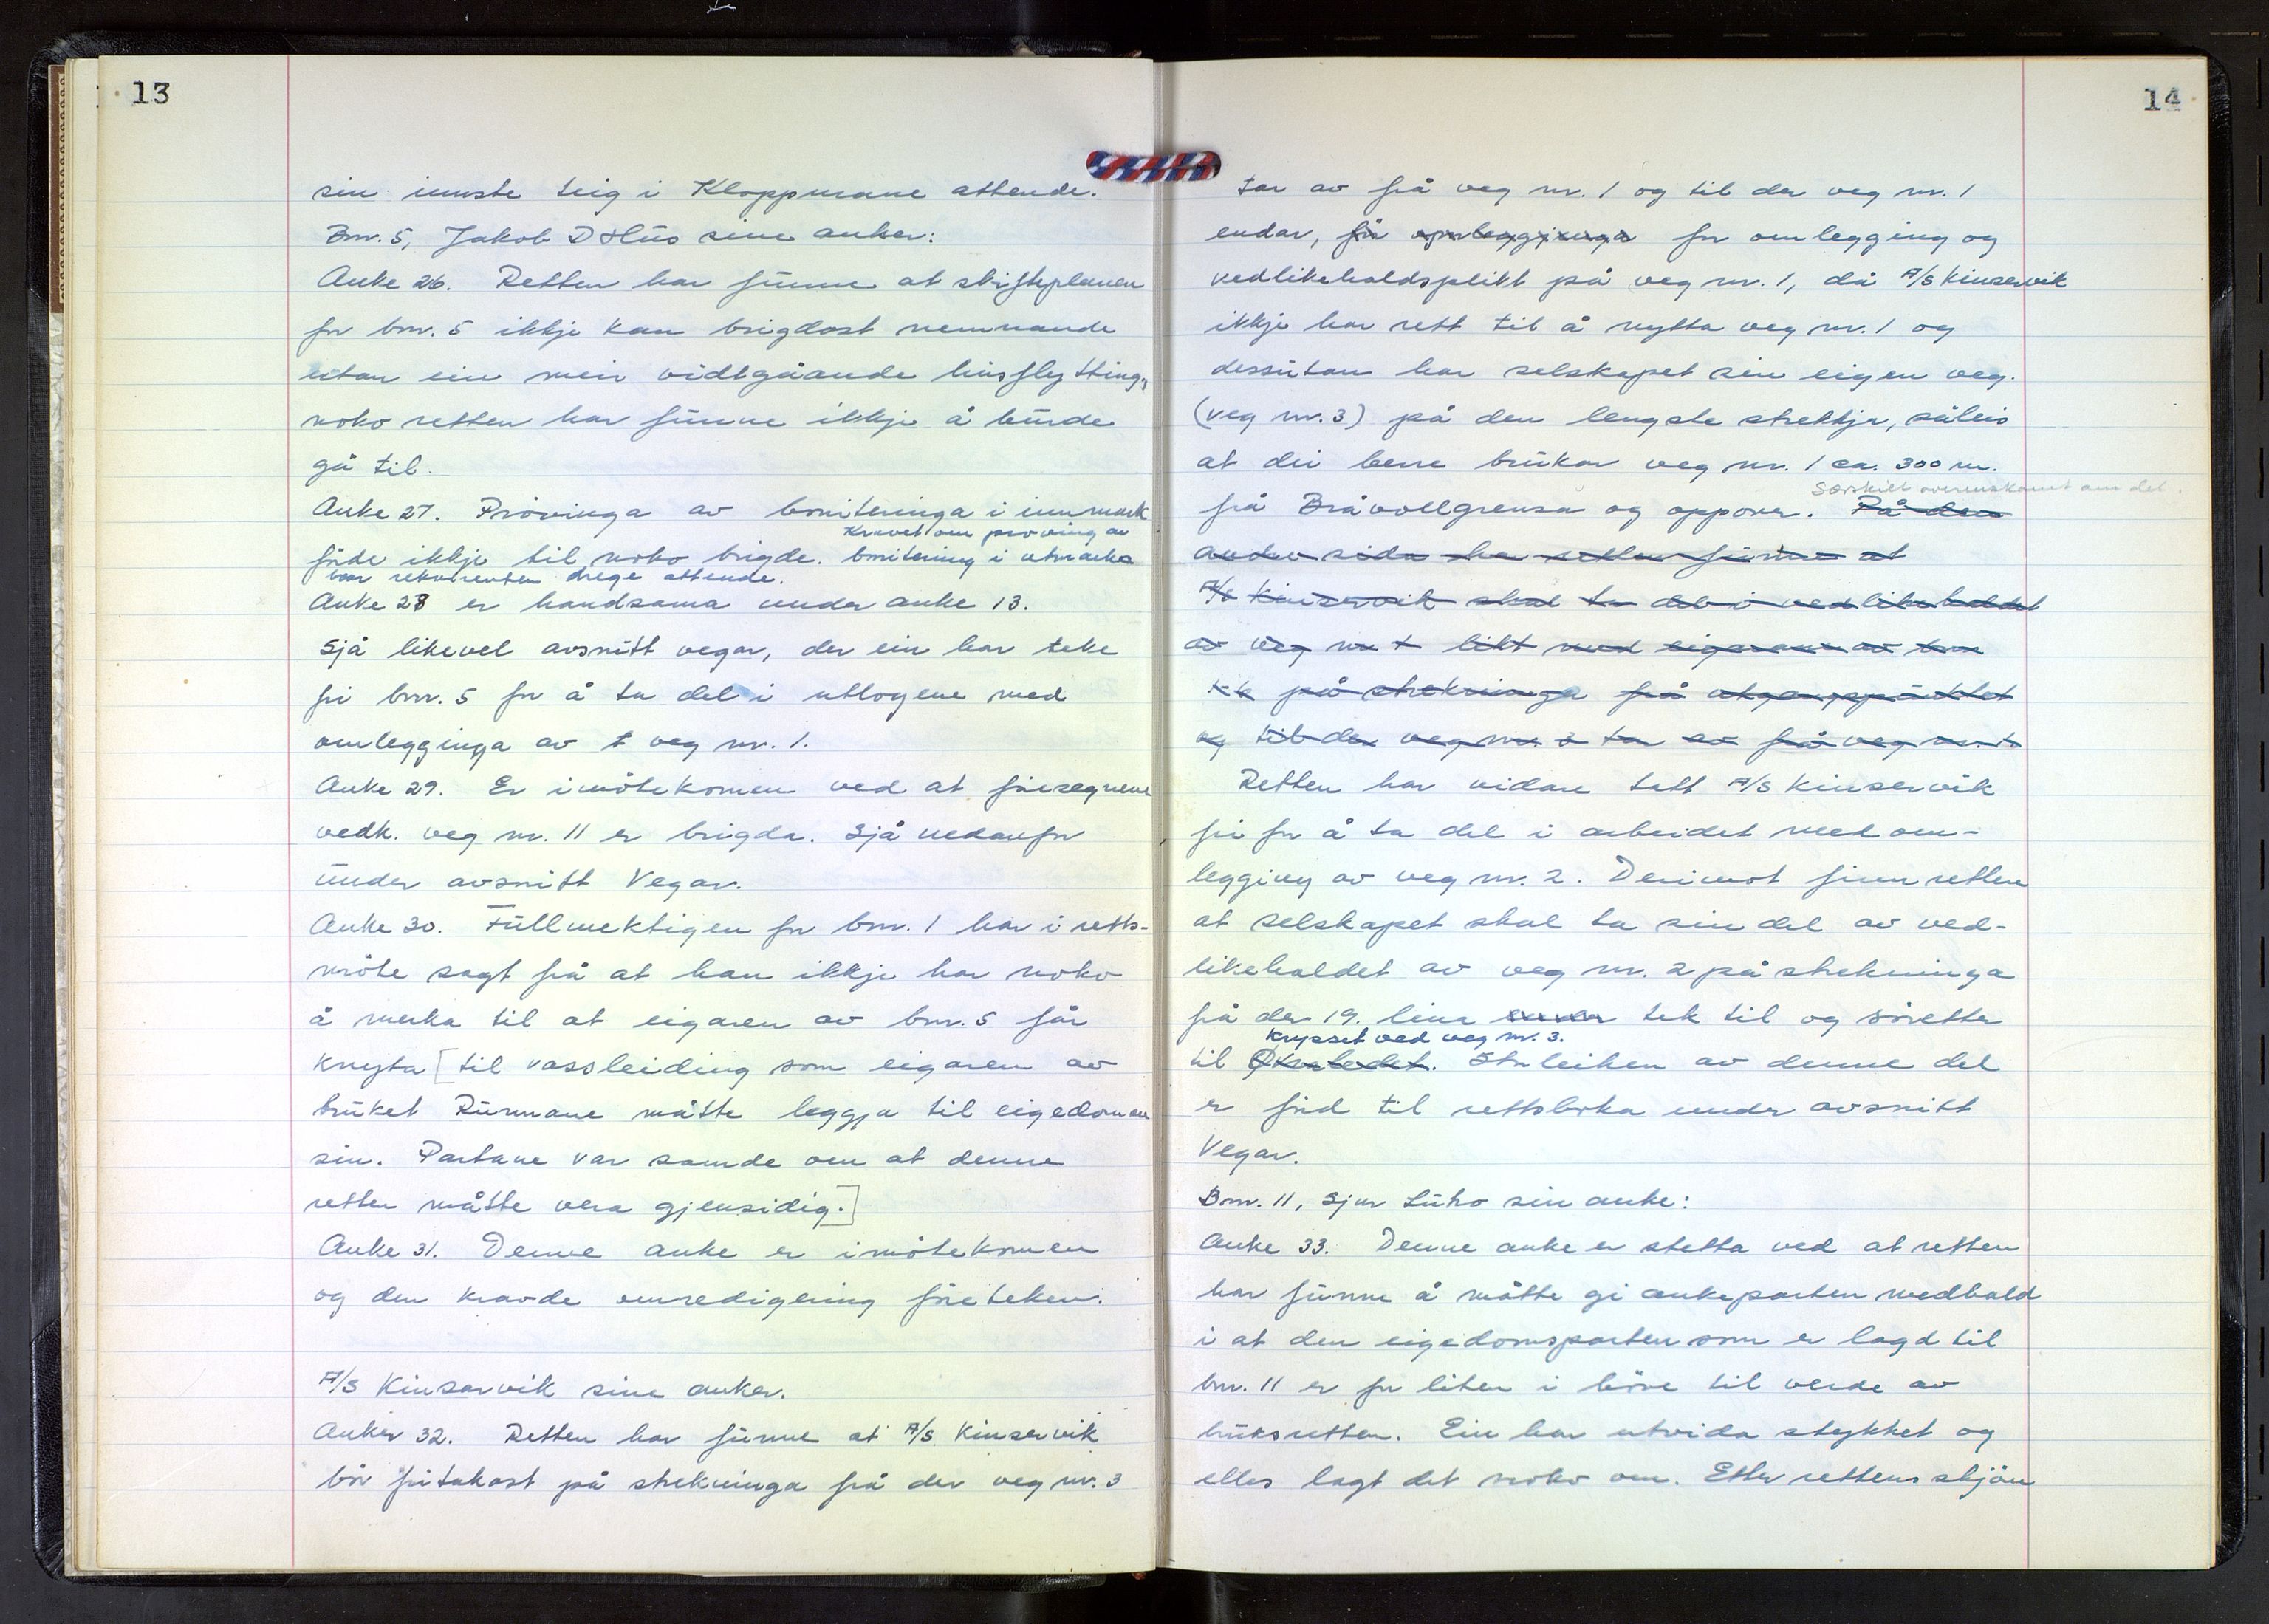 13
sin inmste teig i Kloppmrane attende.
Bnr. 5, Jakob D Hus sine anker:
Anke 26. Retten har funne at skifteplanen
for bnr. 5 ikkje kan brigdast nemnande
utan ein meir vidtgåande husflytting,
noko retten har funne ikkje å burde
gå til.
Anke 27. Prövinga av boniteringa i innmark
Kravet om pröving av
förde ikkje til noko brigde. bonitering i utmarka
har rekvirenten drege attende.
Anke 28 er handsama under anke 13.
Sjå likevel avsnitt vegar, der ein har teke
fri bnr. 5 for å ta del i utlogene med
omlegginga av t veg nr. 1.
Anke 29. Er imötekomen ved at föresegnene
vedk. veg nr. 11 er brigda. Sjå nedanfor
under avsnitt Vegar.
Anke 30. Fullmektigen for bnr. 1 har i retts-
möte sagt frå at han ikkje har noko
å merka til at eigaren av bnr. 5 får
knyta [til vassleiding som eigaren av
bruket Runnane måtte leggja til eigedomen
sin. Partane var samde om at denne
retten måtte vera gjensidig.]
Anke 31. Denne anke er imötekomen
og den kravde omredigering företeken.
A/S Kinsarvik sine anker.
Anker 32. Retten har funne at A/S Kinservik
bör fritakast på strekninga frå der veg nr. 3
14
tar av frå veg nr. 1 og til der veg nr. 1
endar, frå omlegginga for omlegging og
vedlikehaldsplikt på veg nr. 1, då A/S Kinservik
ikkje har rett til å nytta veg nr. 1 og
dessutan har selskapet sin eigen veg.
(veg nr. 3) på den lengste strekkja, såleis
at dei berre brukar veg nr. 1 ca. 300 m.
Særskilt overenskomst om det.
frå Bråvollgrensa og oppover. På den
andre sida har retten funne at
A/S Kinservik skal ta del i vedlikehaldet
av veg nr 1 likt med eigarane av bnr
på strekninga frå utgangspunktet
og til der veg nr. 3 tar av frå veg nr. 1.
Retten har vidare tatt A/S Kinservik
fri for å ta del i arbeidet med om-
legging av veg nr. 2. Derimot finn retten
at selskapet skal ta sin del av ved-
likehaldet av veg nr. 2 på strekninga
frå der 19. lina tek til og söretter
krysset ved veg nr. 3.
til. Storleiken av denne del
er förd til rettsboka under avsnitt
Vegar.
Bnr. 11, Sjur Lutro sin anke:
Anke 33. Denne anke er stetta ved at retten
har funne å måtte gi ankeparten medhald
i at den eigedomsparten som er lagd til
bnr. 11 er for liten i höve til verde av
bruksretten. Ein har utvida stykket og
elles lagt det noko om. Etter rettens skjön